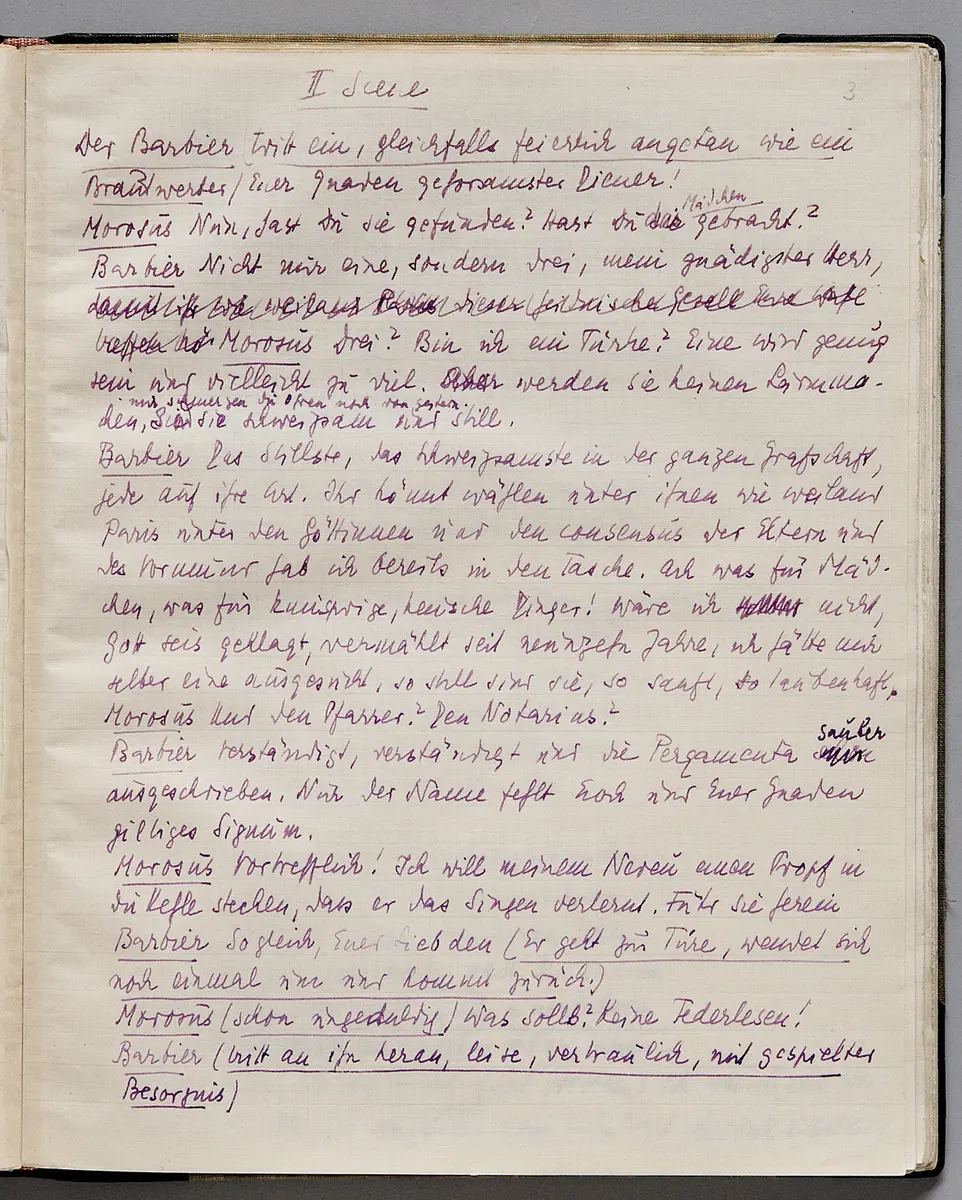 II Scene
3
Der Barbier (tritt ein, gleichfalls feierlich angetan wie ein
Brautwerber) Euer Gnaden gehorsamster Diener!
Mädchen
Morosus Nun, hast Du sie gefunden? Hast Du gebracht?
Barbier Nicht nur eine, sondern drei, mein gnädigster Herr,
weiland dieser Geselle
Morosus Drei? Bin ich ein Türke? Eine wird genug
sein und vielleicht zu viel. Aber werden sie keinen Lärm ma-
mir schmerzen die Ohren noch von gestern.
chen, Sind sie schweigsam und still.
Barbier Das Stillste, das Schweigsamste in der ganzen Grafschaft,
jede auf ihre Art. Ihr könnt wählen unter ihnen wie weiland
Paris unter den Göttinnen und den consensus der Eltern und
des Vormund hab ich bereits in den Tasche. Ach was für Mäd-
chen, was für knusprige, keusche Dinger! Wäre ich nicht,
Gott seis geklagt, vermählt seit neunzehn Jahre, ich hätte mir
selber eine ausgesucht, so still sind sie, so sanft, so taubenhaft.
Morosus Und den Pfarrer? Den Notarius?
sauber
Barbier Verständigt, verständigt und die Pergamenta
ausgeschrieben. Nur der Name fehlt noch und Euer Gnaden
giltiges Signum.
Morosus Vortrefflich! Ich will meinem Neveu einen Propf in
die Kehle stechen, dass er das Singen verlernt. Führ sie herein
Barbier Sogleich, Euer Liebden (Er geht zur Türe, wendet sich
noch einmal um und kommt zurück.)
Morosus (schon ungeduldig) Was solls? Keine Federlesen!
Barbier (tritt an ihn heran, leise, vertraulich, mit gespielter
Besorgnis)